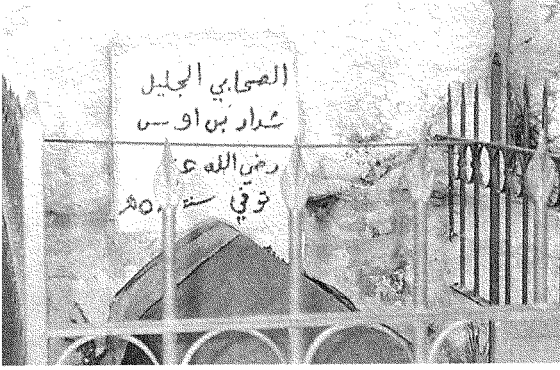 الصحابي الجليل
شداد بن اوس
رضي الله
توفي سنة ٥٨هـ